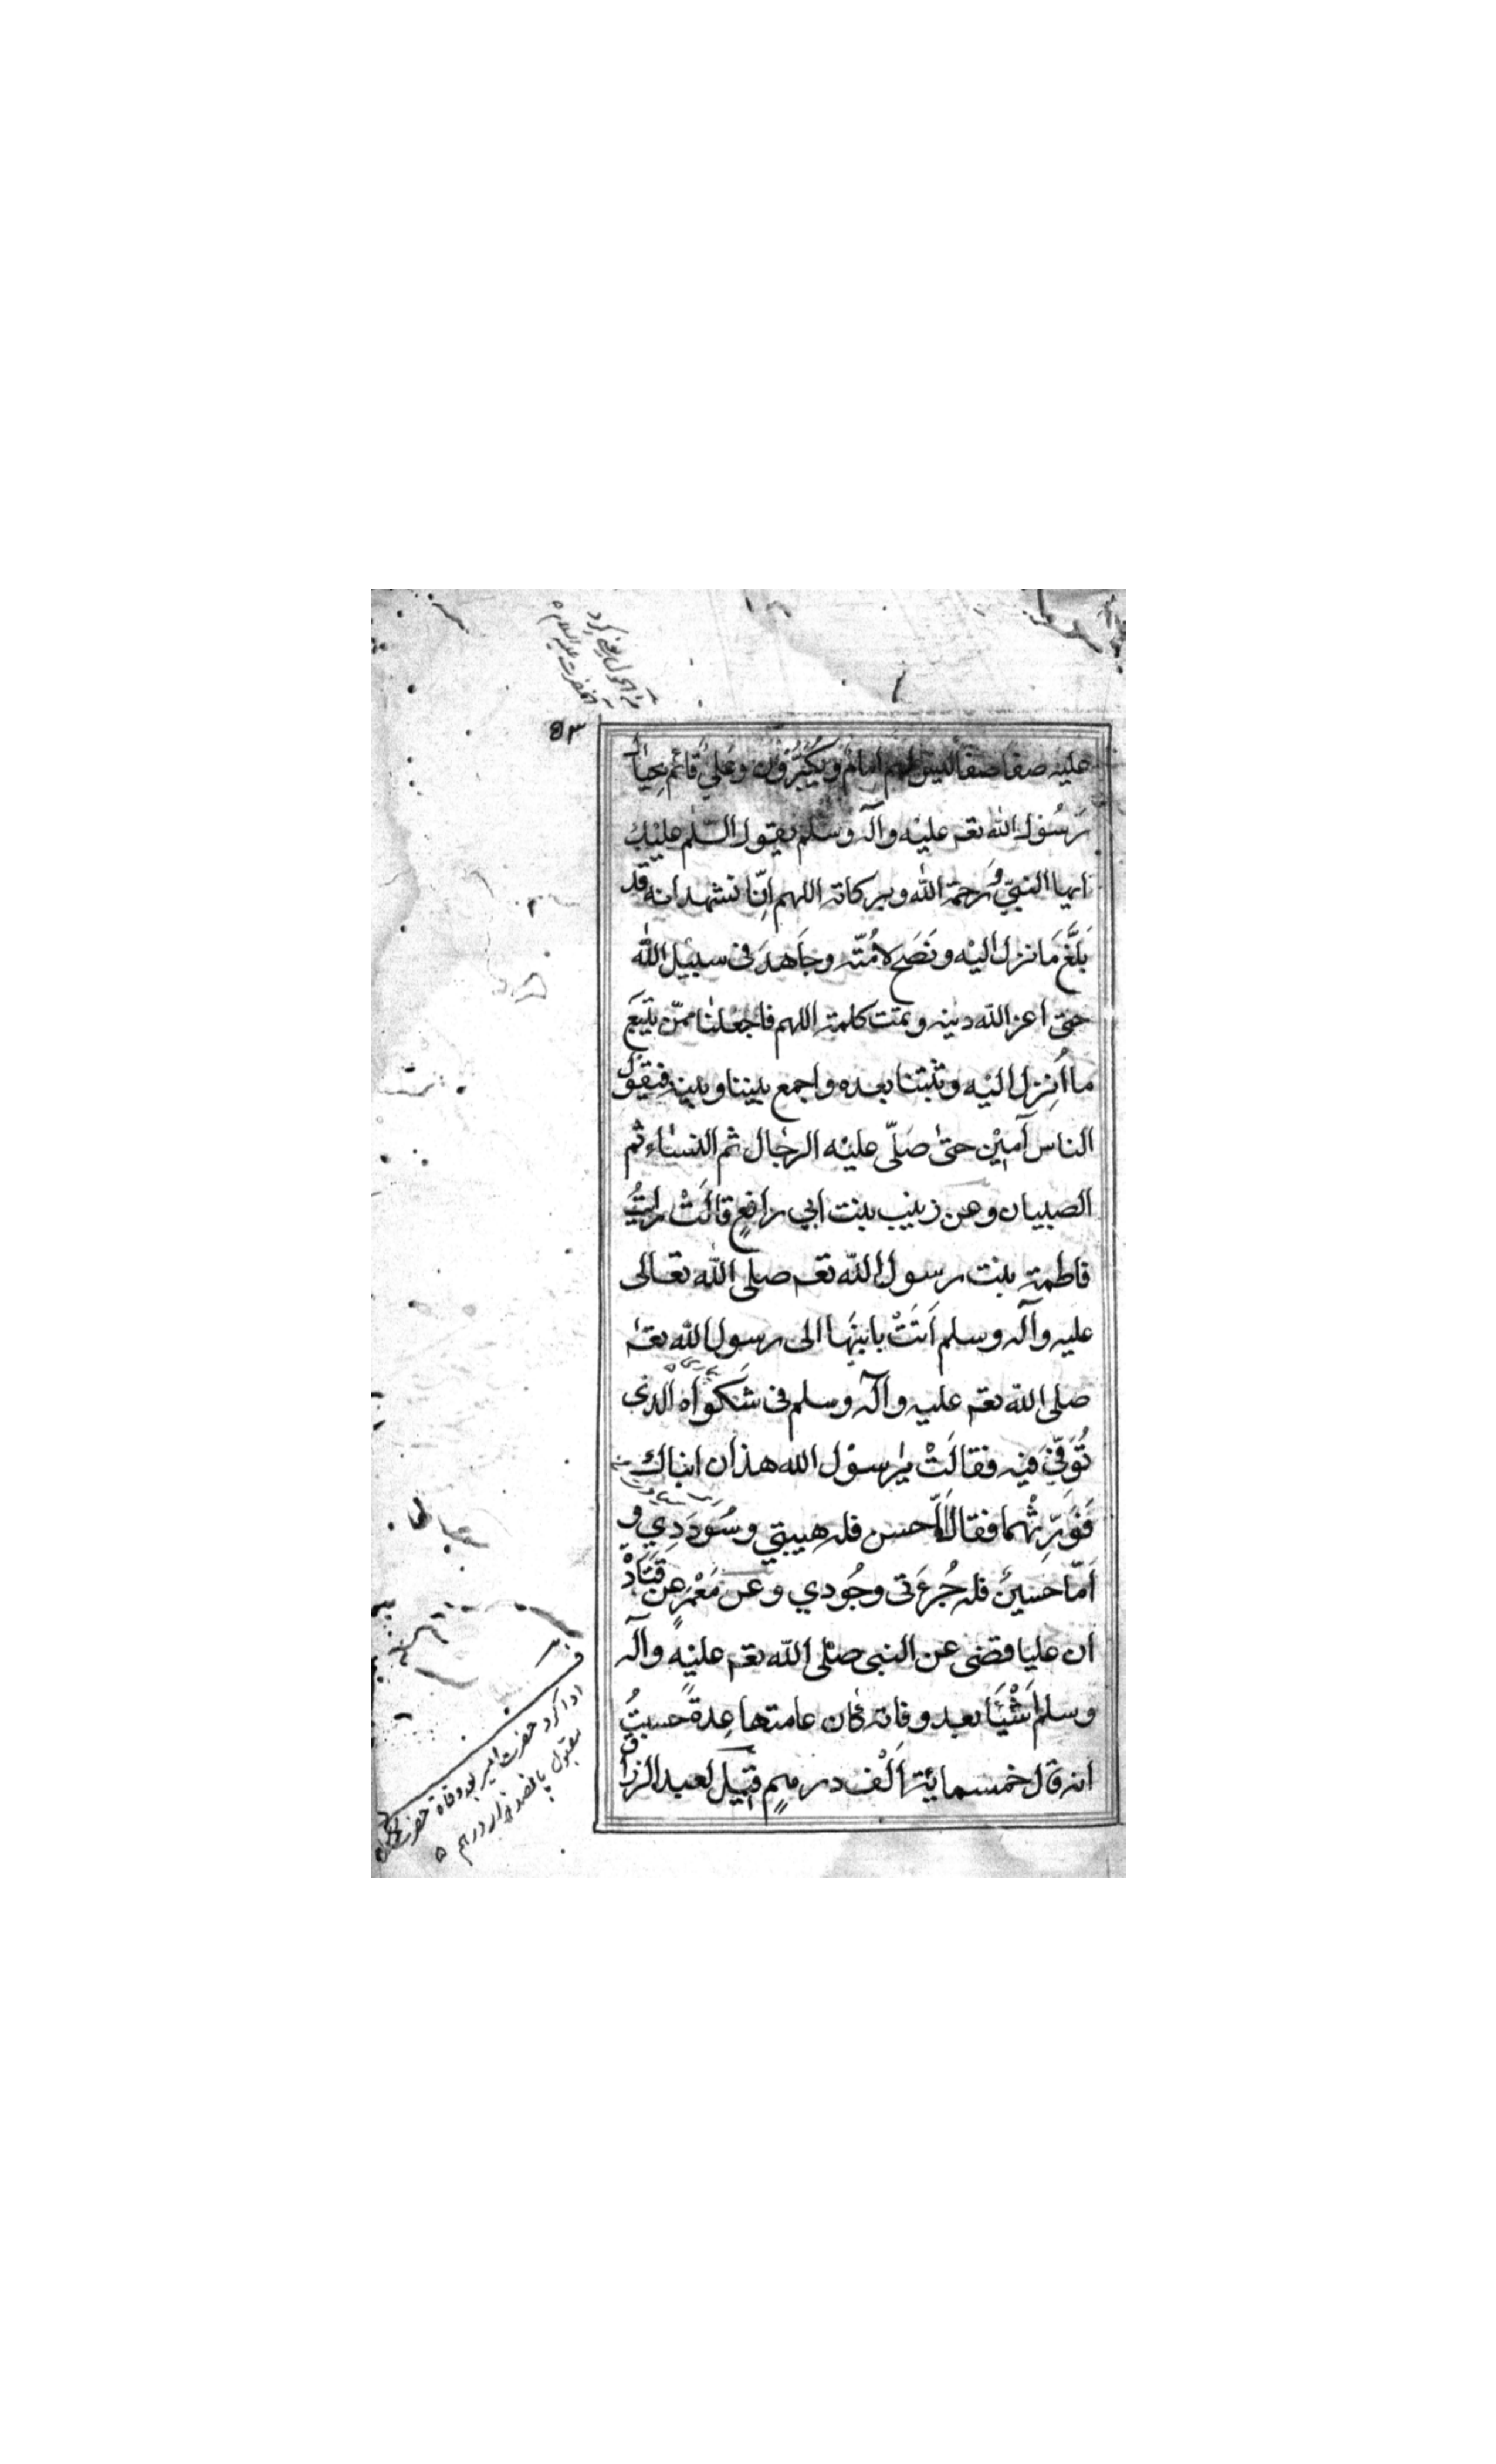 آنحضرت علیه السلام ٥
٥٣
عليه صفا صفا ليس لهم امام وَيُكَبِّرُوْن وعَليٌّ قَائم بحيال
رَسُوْل الله تعـ عليْه وآلہ وسلم يقول السّلٰم عليْك
ايها النبيّ وَرحمة الله وبركاته اللهم انّا نشهد انه قد
بَلَّغ مَا نزل اليْه ونَصَح لامُتّه وجَاهدَ فى سبيْل الله
حتى اعز الله دينه وتمت كلمته اللهم فاجعلنا ممّن يتبعَ
ما اُنزِل اليْه وثبتنا بعده واجمع بيننا وبينه فيقوْل
الناس آمِيْن حتىٰ صَلّى عليْه الرجٰال ثم النسٰاء ثم
الصبيان وعن زينب بنت ابي رافعٍ قالَتْ رايتُ
فاطمة بنت رسول الله تعـ صلى الله تعالى
عليه وآلہ وسلم اَتَتْ بابنَيها الى رسول الله تعـ
صلى الله تعـ عليه وآلہ وسلم فى شَكْوَاه الذى
تُوَفِّيَ فيْه فقالَتْ يٰرسوْل الله هذان ابناك
فَوَرِّثْهما فقال اَمّا حسن فله هيبتي وسُودَدِي و
اَمّا حسينٌ فله جُرءَتى وجُودي وعن مَعْمَرٍ عن قَتَادَة
ان عليا قضى عن النبى صلى الله تعـ عليْه وآلہ
وسلم اَشْيَاَ بعد وفاته كان عامتها عِدةً حَسبْتُ
انه قال خمسمائة اَلْف درهمٍ قِيْل لعبد الرزاق
ادا کرد حضرت امیر بعد وفاة حضرت
پانصد هزار درهم ٥